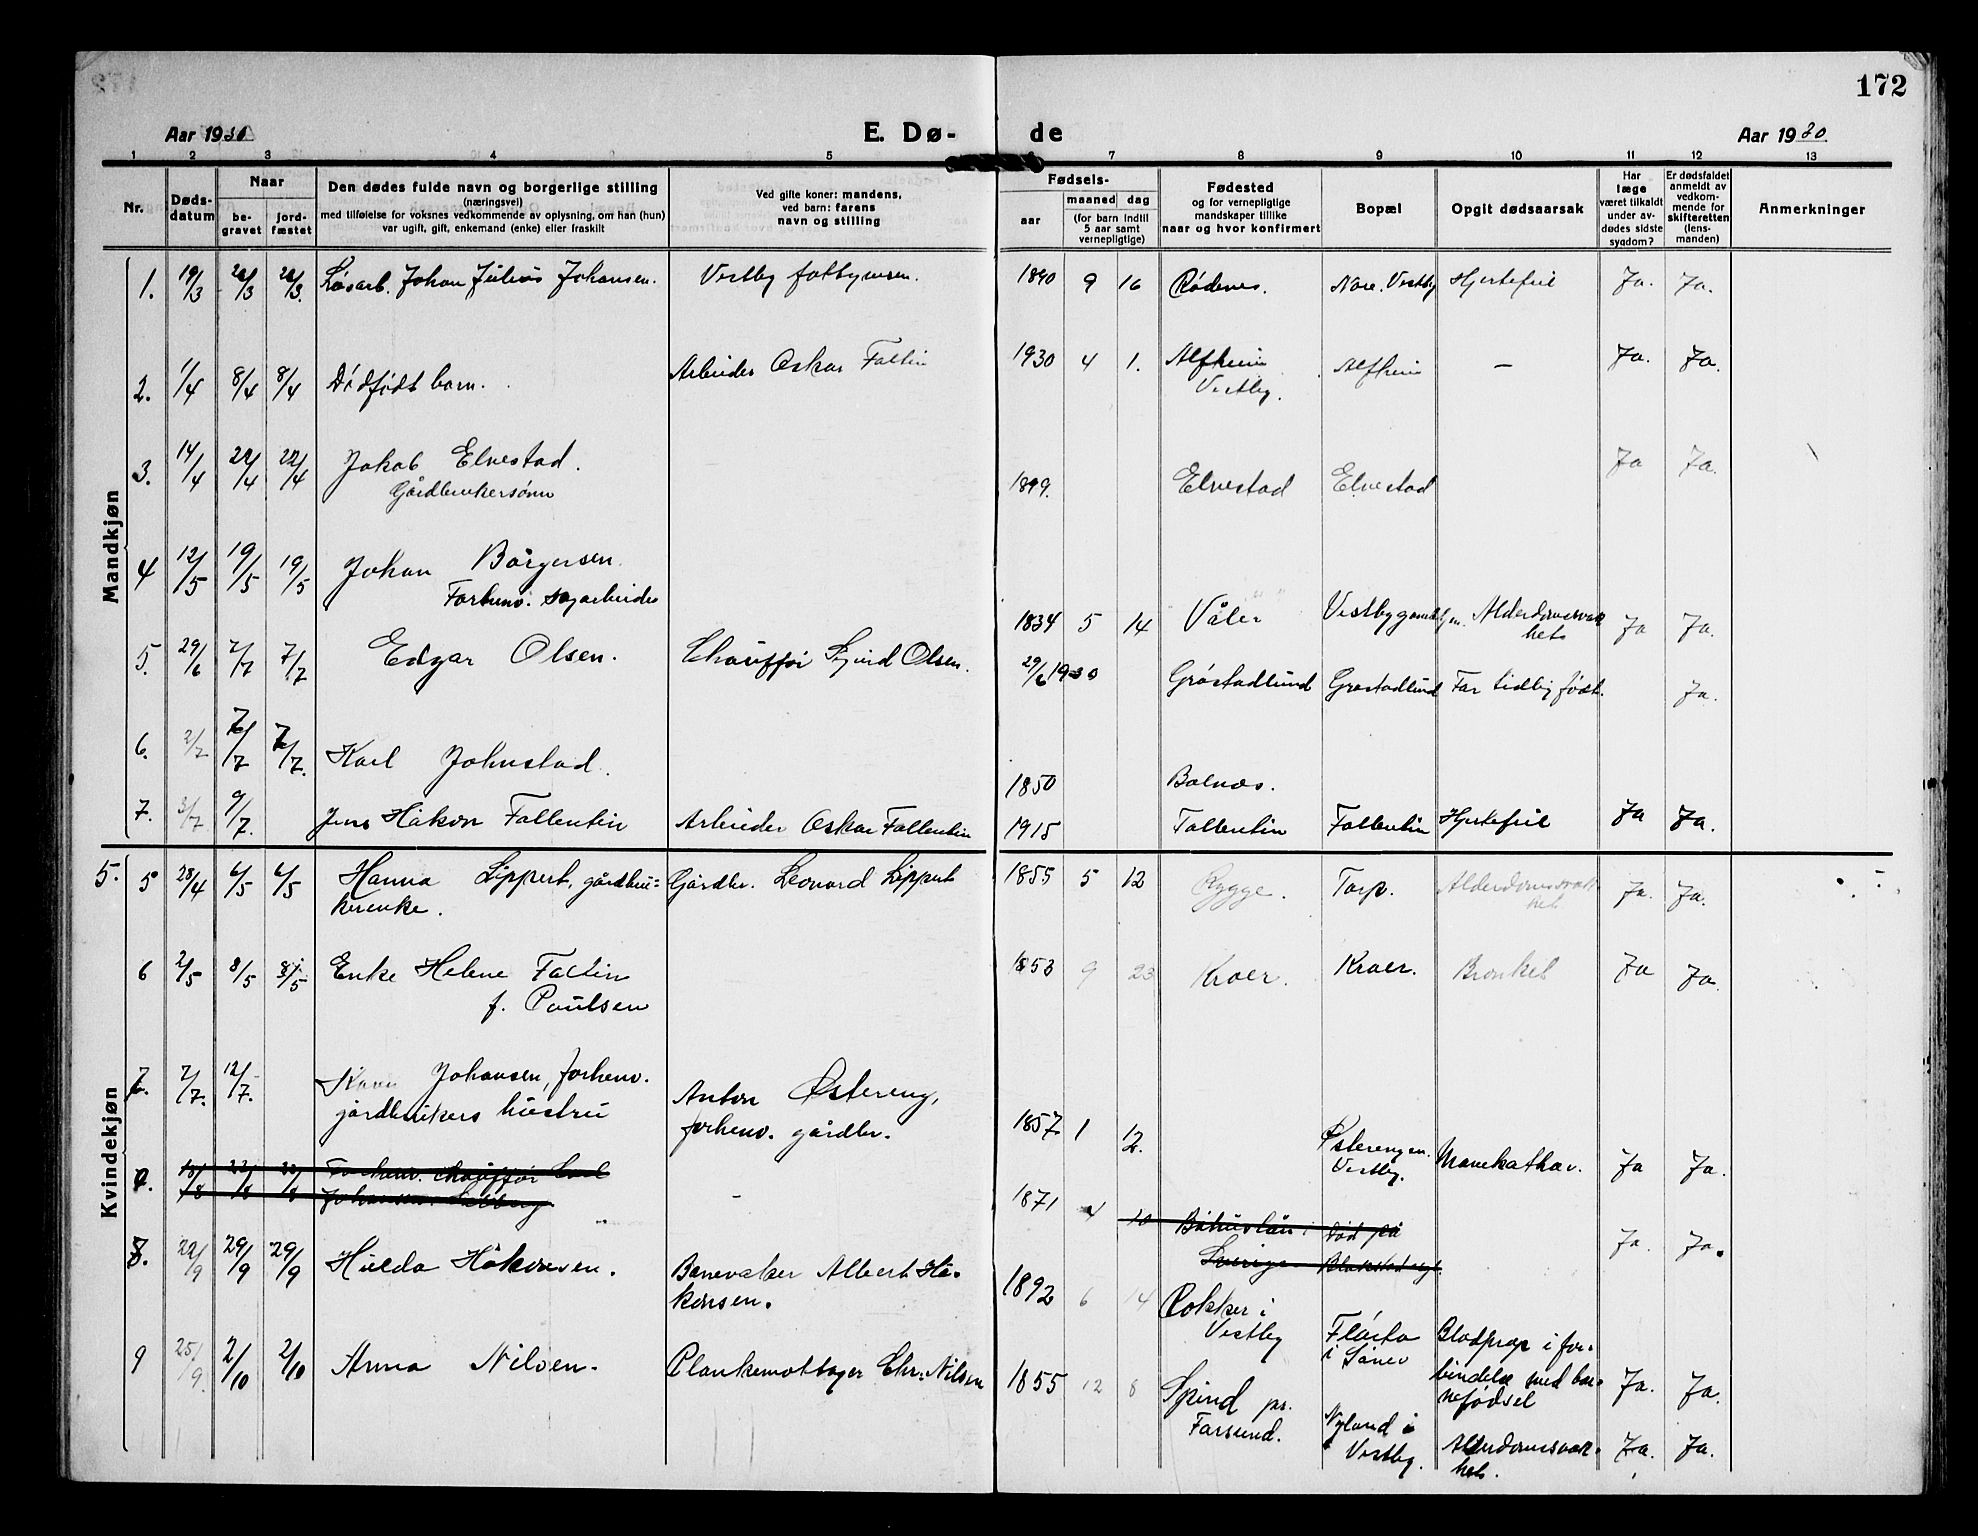 172
Aar 1930
E. Dø-
de
Aar 1930
1 2 3 4 5 6 7 8 9 10 11 12 13
Nr.
Døds-
datum
Naar
be-
gravet
jord-
fæstet
Den dødes fulde navn og borgerlige stilling
(næringsvei)
med tilføielse for voksnes vedkommende av oplysning, om han (hun)
var ugift, gift, enkemand (enke) eller fraskilt
Ved gifte koner: mandens,
ved barn: farens
navn og stilling
Fødsels-
aar
maaned dag
(for barn indtil
5 aar samt
vernepligtige)
Fødested
og for vernepligtige
mandskaper tillike
naar og hvor konfirmert
Bopæl
Opgit dødsaarsak
Har
læge
været tilkaldt
under av-
dødes sidste
sygdom?
Er dødsfaldet
anmeldt av
vedkom-
mende for
skifteretten
(lens-
manden)
Anmerkninger
Mandkjøn
1. 19/3 Løsarb. Johan Julius Johansen. Vestby fattigvesen. 1840 9 16 Rødenes. Nore. Vestby Hjertefeil Ja. Ja.
2. 1/4 8/4 8/4 Dødfødt barn. Arbeider Oskar Faltin 1930 4 1. Alfheim
Vestby. Alfheim — Ja. Ja.
3. 14/4 22/4 22/4 Jakob Elvestad.
Gårdbrukersønn 1899. Elvestad Elvestad Ja Ja.
4 12/5 19/5 19/5 Johan Børgersen.
Forhenv. sagarbeider 1834 5 14 Våler Alderdomssvak
het Ja Ja.
5. 29/6 7/7 7/7 Edgar Olsen. Chauffør Olsen. 29/6 1930 Grøstadlund Grøstadlund For tidlig født. Ja.
6. 2/7 Karl Johnstad. 1850 Bolnes.
7. 3/7 9/7. Jens Håkon Fallentin Arbeider Oskar Fallentin 1915 Fallentin Fallentin Hjertefeil Ja Ja.
Kvindekjøn
5. 5 28/4 6/5 6/5 Hanna Lippert, gårdbru=
kerenke. Gårdbr. Leonard Lippert 1855 5 12 Rygge. Torp. Alderdomssvak
het Ja. Ja.
6 2/5 8/5 8/5 Enke Helene Faltin
f. Paulsen 1853 9 23 Kroer Kroer. Bronkit Ja Ja.
7. 7/7. 12/7. Johansen, forhenv.
gårdbrukers hustru Anton Østereng,
forhenv. gårdbr. 1857 1 12. Østerengen.
Vestby. Mavekathar. Ja Ja.
18/8 22/8 22/8 Forhenv. chauffør Carl
Johansen - 1871 4 10 Båhuslän i
Sverige Død på
Ja. Ja.
8. 22/9 29/9 29/9 Hulda Håkonsen. Banevakter Albert Hå-
konsen. 1892 6 14 Pokker i
Vestby Flåta
i Såner Blodprop i for-
bindelse med bar-
nefødsel Ja. Ja.
9 25/9. 2/10 2/10 Anna Nilsen. Plankemottager Chr. Nilsen 1855 12 8 Spind pr.
Farsund. Nyland i
Vestby. Alderdomssvak-
het. Ja. Ja.